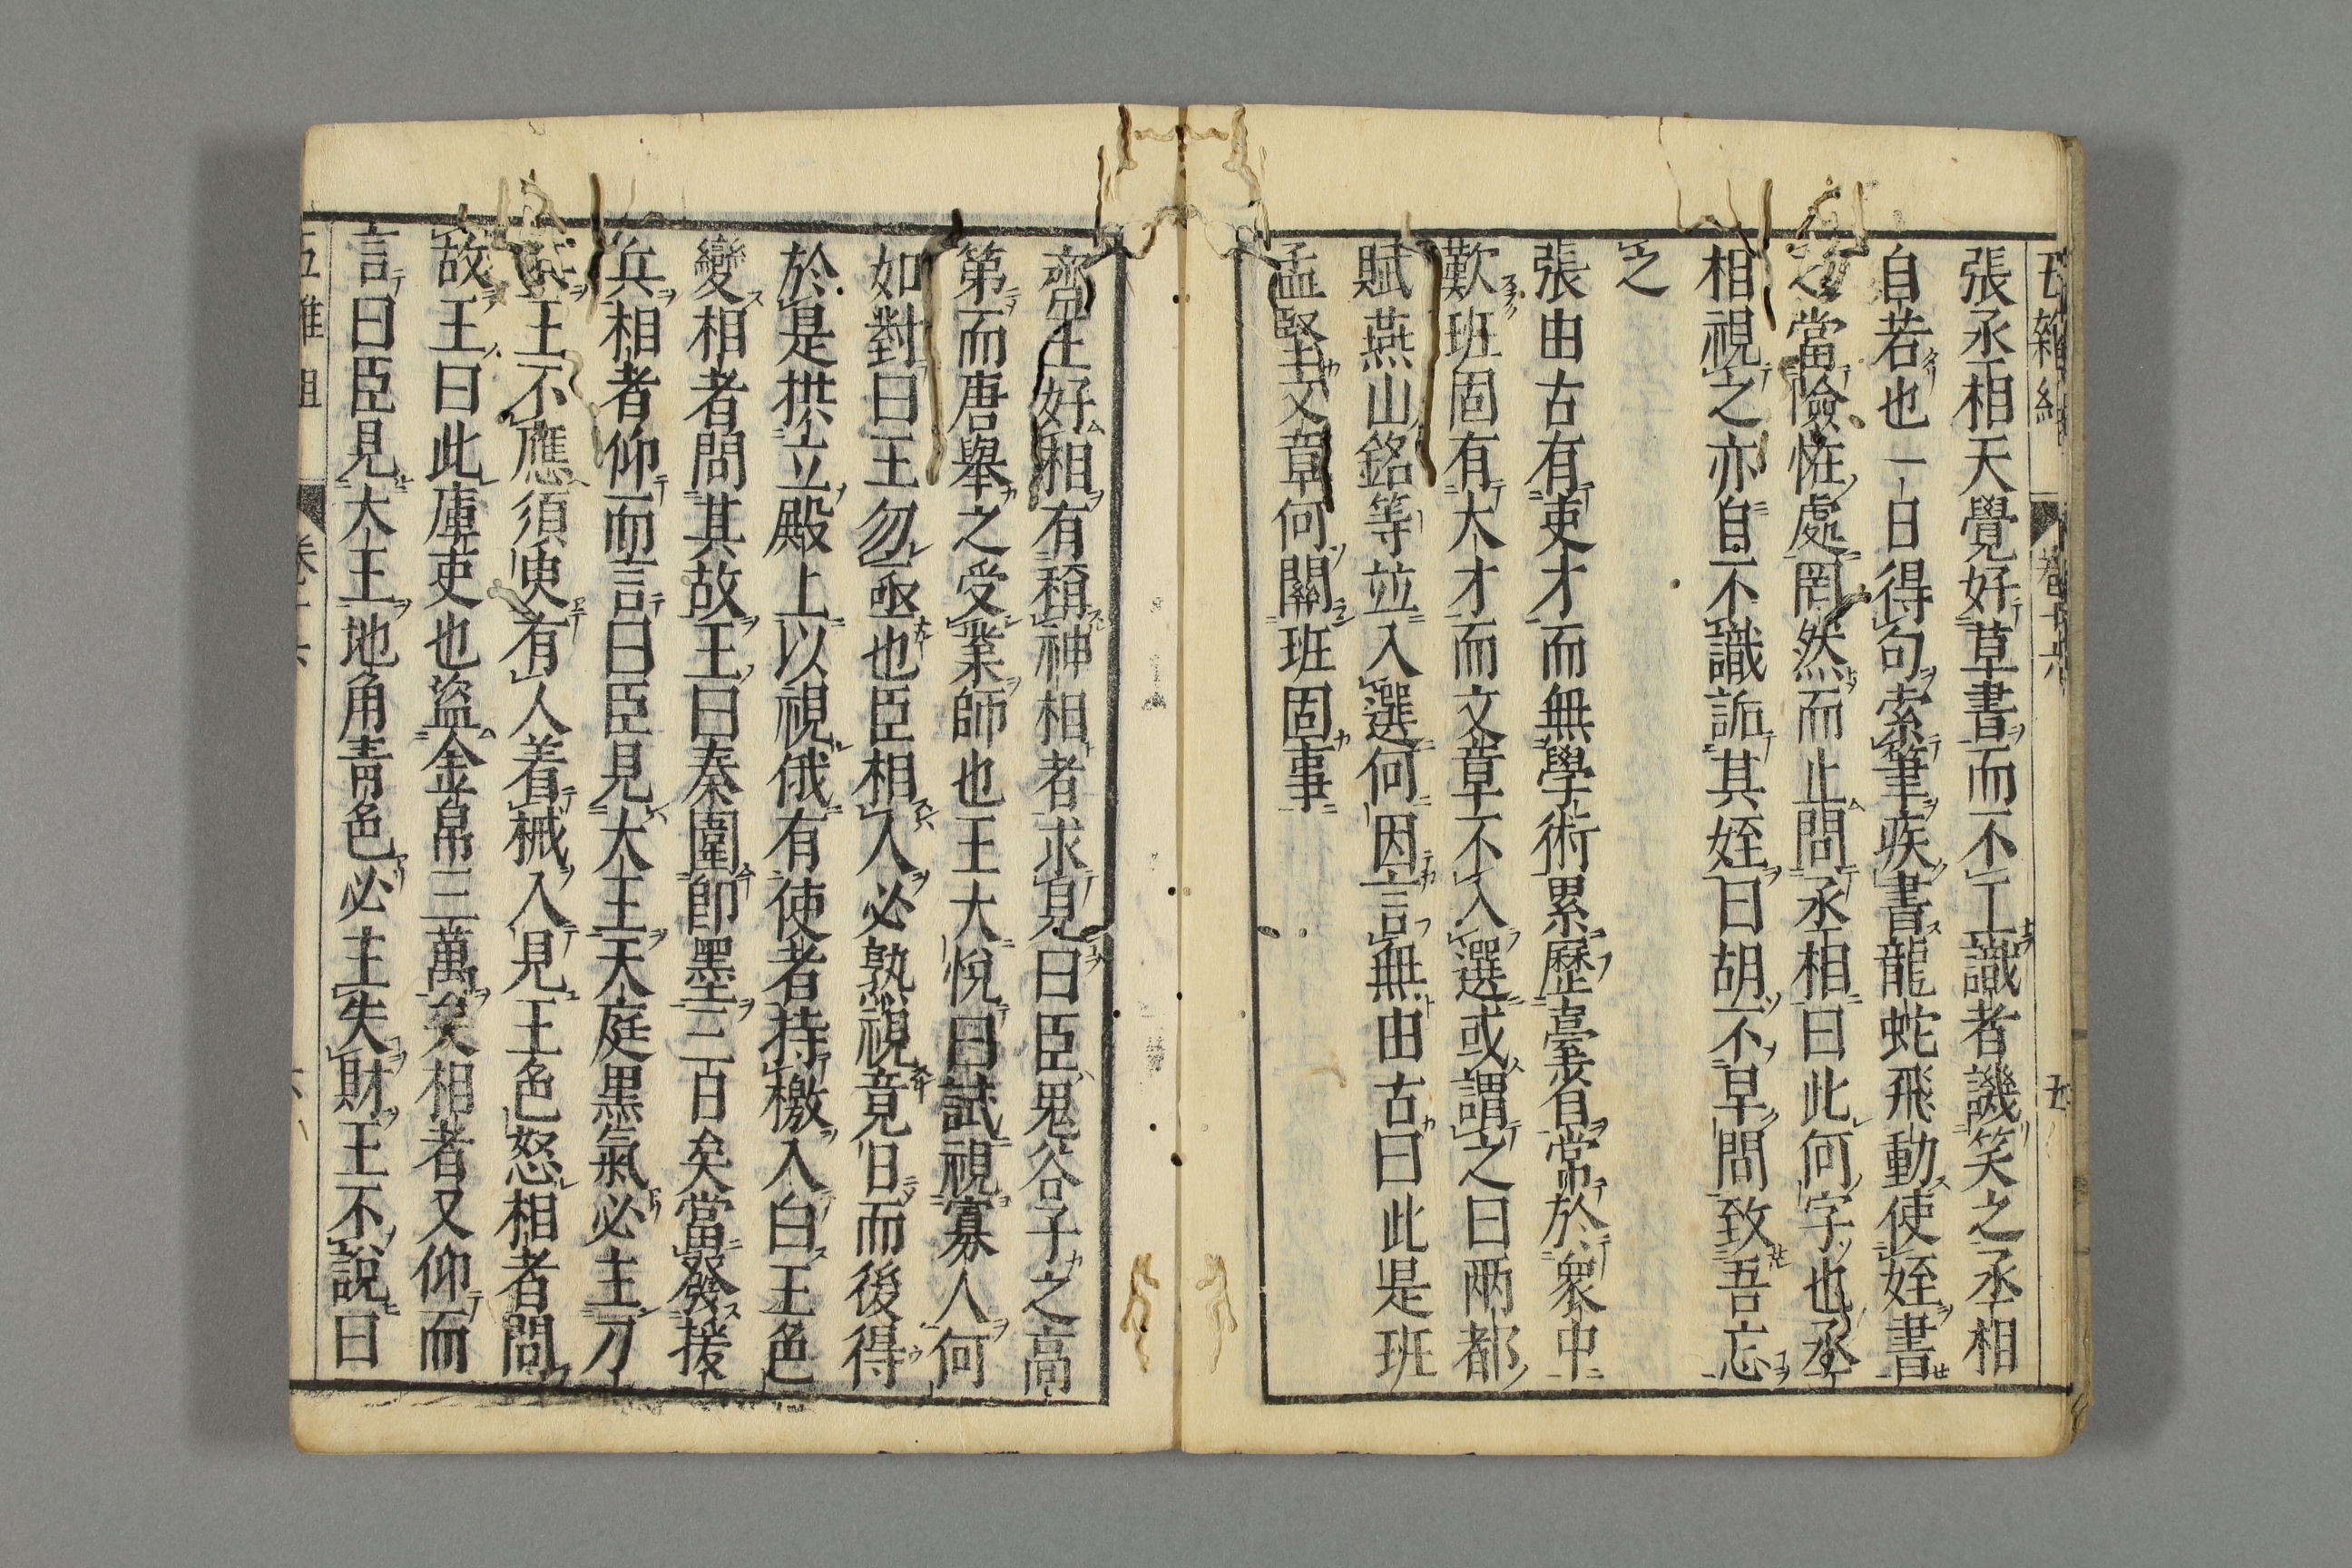 五雜組 卷十六 五
張丞相天覺好草書而不工識者譏笑之丞相
自若也一日得句索筆疾書龍蛇飛動使姪書
當險怪處罔然而止問丞相曰此何字也丞
相視之亦自不識詬其姪曰胡不早問致吾忘
之
張由古有吏才而無學術累歷臺省常於衆中
歎班固有大才而文章不入選或謂之曰兩都
賦燕山銘等並入選何因言無由古曰此是班
孟堅文章何關班固事
齊王好相有稱神相者求見曰臣鬼谷子之高
第而唐舉之受業師也王大悅曰試視寡人何
如對曰王勿亟也臣相人必熟視竟日而後得
於是拱立殿上以視俄有使者持檄入白王色
變相者問其故王曰秦圍卽墨三百矣當發援
兵相者仰而言曰臣見大王天庭黑氣必主刀
兵王不應須臾有人着械入見王色怒相者問
故王曰此庫吏也盜金帛三萬矣相者又仰而
言曰臣見大王地角靑色必主失財王不說曰
五雜組 卷十六